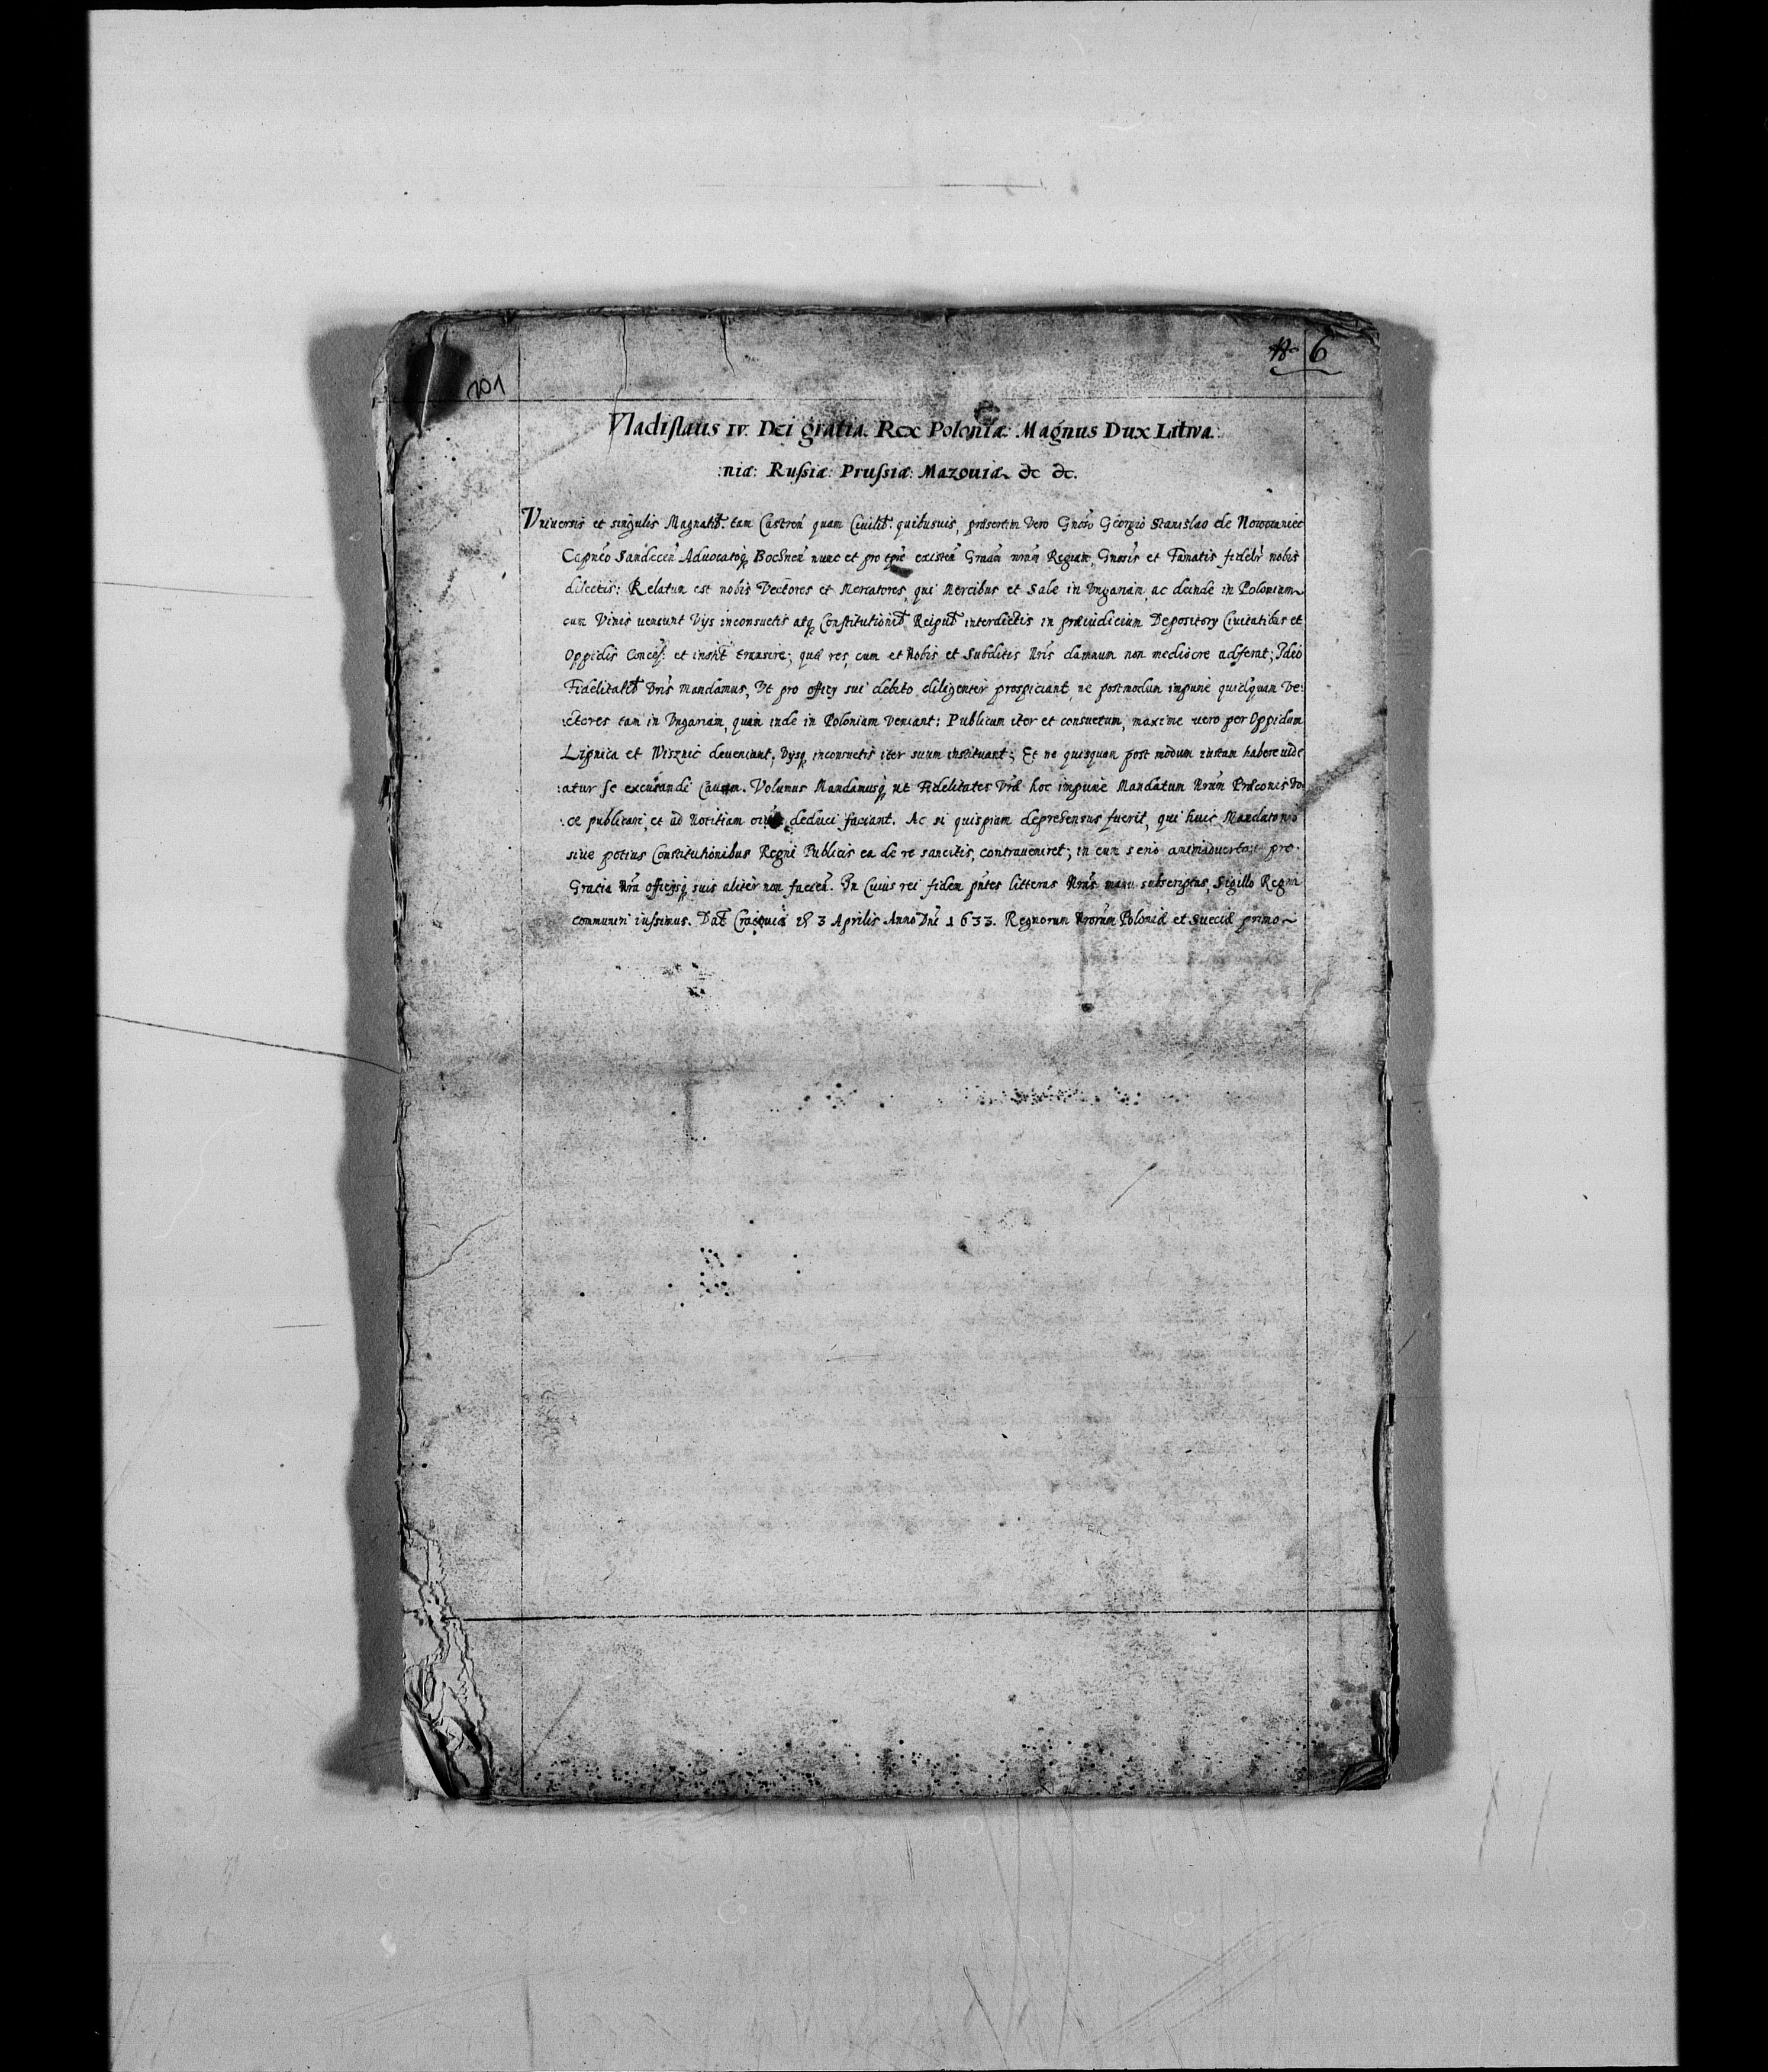 201
No 6
Vladislaus IV. Dei gratia. Rex Poloniæ: Magnus Dux Litwa:
:niæ: Russiæ: Prussiæ: Mazouiæ &c &c.
Vniuersis et singulis Magnatib9. tam Castren̄ quam Ciuilib9. quibusuis, præsertim vero Gnoso Georgio Stanislao de
Capneo Sandecen̄ Aduocatoq Bochnen̄ nunc et pro tpre existen̄ Graām nrām Regiam, Gnosis et Famatis fidelib nobis
dilectis: Relatum est nobis Vectores et Mercatores, qui Mercibus et Sale in Vngariam, ac deinde in Poloniam
cum Vinis ueneunt Vijs inconsuetis atq Constitutionib Reipub interdictis in præiudicium Depositorÿ Ciuitatibus et
Oppidis Conces: et instit transire; quæ res, cum et Nobis et Subditis Nris damnum non mediocre adferat; Ideo
Fidelitatib Vris mandamus, Vt pro officÿ sui debito diligenter prospiciant, ne postmodum impune quidquam Ve:
:ctores tam in Vngariam, quam inde in Poloniam veniant: Publicum iter et consuetum, maxime uero per Oppidum
Lipnica et Wisznic deueniant, Vijsq inconsuetis iter suum instituant; Et ne quisquam post modum iustam habere uide
:atur se excusandi Causam. Volumus Mandamusq ut Fidelitates Vræ hoc impune Mandatum Nrum Præconis Vo
:ce publicari, et ad Notitiam oium deduci faciant. Ac si quispiam deprehensus fuerit, qui huic Mandato nro
siue potius Constitutionibus Regni Publicis ea de re sancitis, contraueniret; in eum serio animaduertant pro
Gratia Nra officijsq suis aliter non facien̄. In Cuius rei fidem pntes litteras Nras manu subscriptas, Sigillo Regni
communiri iussimus. Dat Cracouiæ 3 Aprilis Anno Dni 1633. Regnorum Nrorum Poloniæ et Sueciæ primo